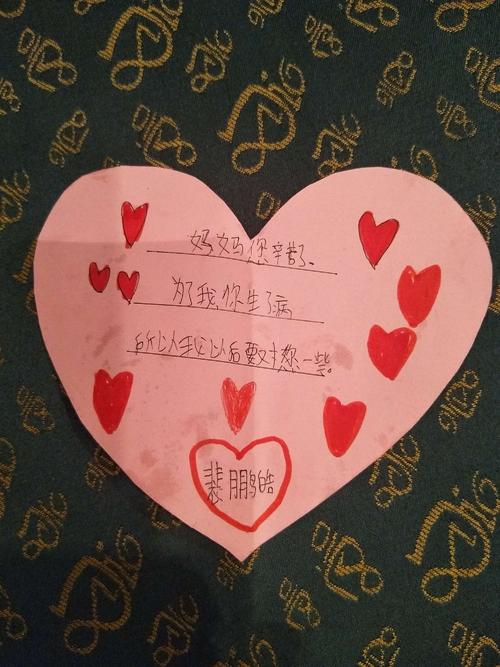 妈妈您辛苦了。
为了我你生了病
所以我以后要对您一些。
裴鹏皓